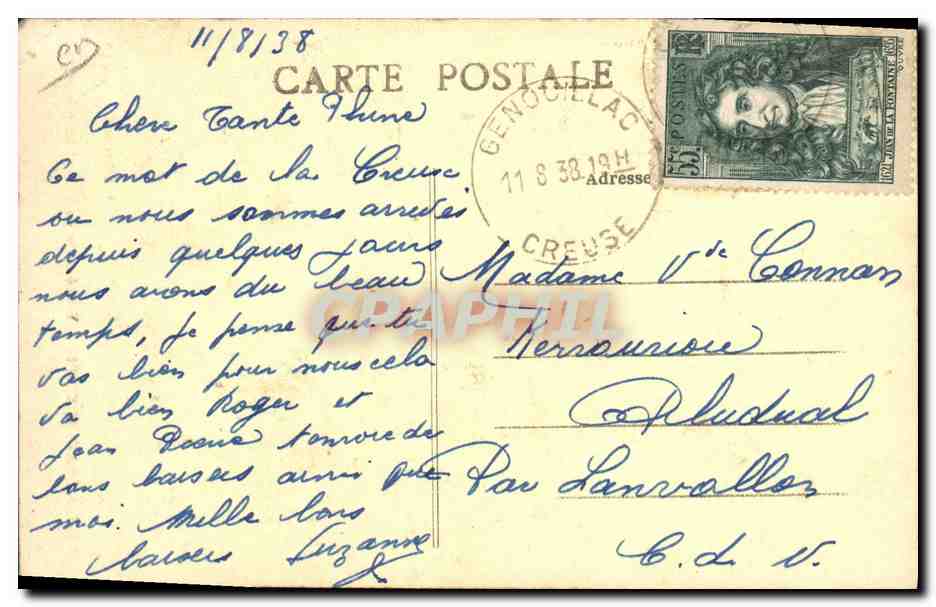 11/8/38
CARTE POSTALE
Chère Tante Phine
Ce mot de la Creuse
ou nous sommes arrivés
depuis quelques jours
nous avons du beau
temps, je pense que tu
vas bien pour nous cela
va bien Roger et
Jean t'envoie de
bons baisers ainsi que
moi. Mille bons
baisers Suzanne
GENOUILLAC
11 8 38 19H
CREUSE
Adresse
55c POSTES RF
1621 JEAN DE LA FONTAINE 1695
OUVRÉ
Madame Vde Connan
Pludual
Par Lanvollon
C. d. N.
CPAPHIL